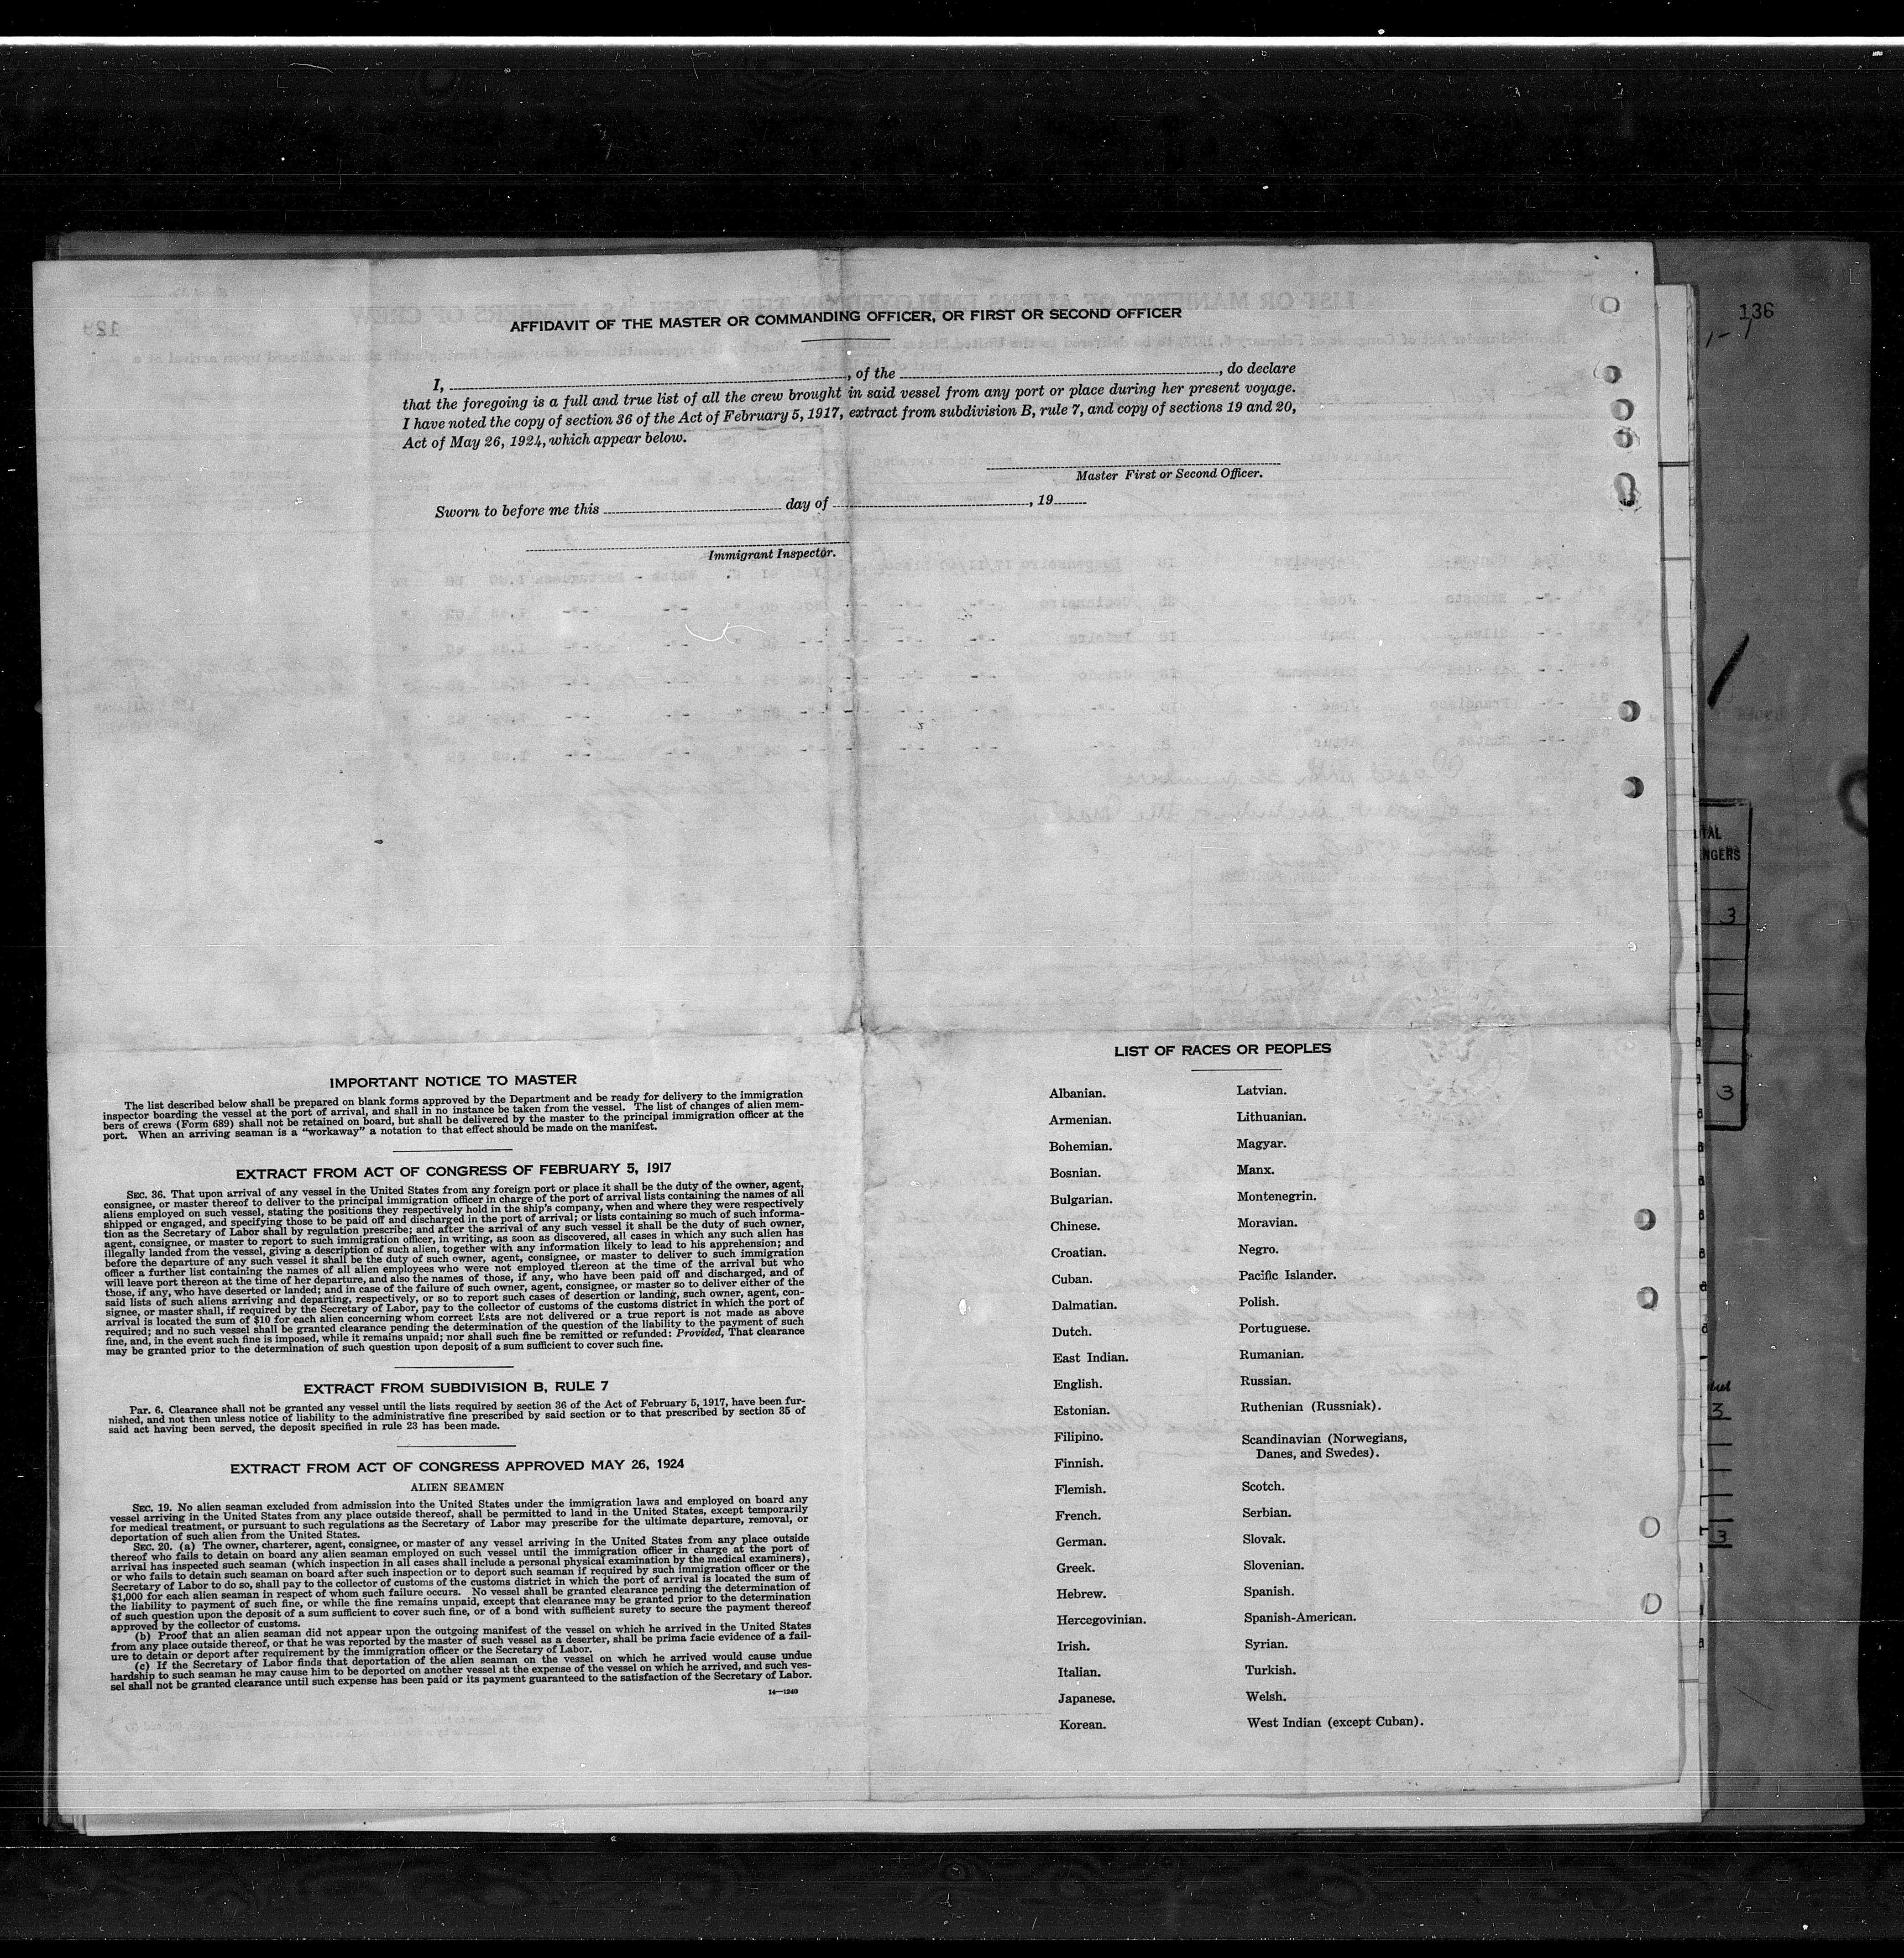 136
AFFIDAVIT OF THE MASTER OR COMMANDING OFFICER, OR FIRST OR SECOND OFFICER
I, , of the , do declare
that the foregoing is a full and true list of all the crew brought in said vessel from any port or place during her present voyage.
I have noted the copy of section 36 of the Act of February 5, 1917, extract from subdivision B, rule 7, and copy of sections 19 and 20,
Act of May 26, 1924, which appear below.
Master First or Second Officer.
Sworn to before me this day of , 19
Immigrant Inspector.
IMPORTANT NOTICE TO MASTER
The list described below shall be prepared on blank forms approved by the Department and be ready for delivery to the immigration
inspector boarding the vessel at the port of arrival, and shall in no instance be taken from the vessel. The list of changes of alien mem-
bers of crews (Form 689) shall not be retained on board, but shall be delivered by the master to the principal immigration officer at the
port. When an arriving seaman is a “workaway” a notation to that effect should be made on the manifest.
EXTRACT FROM ACT OF CONGRESS OF FEBRUARY 5, 1917
SEC. 36. That upon arrival of any vessel in the United States from any foreign port or place it shall be the duty of the owner, agent,
consignee, or master thereof to deliver to the principal immigration officer in charge of the port of arrival lists containing the names of all
aliens employed on such vessel, stating the positions they respectively hold in the ship's company, when and where they were respectively
shipped or engaged, and specifying those to be paid off and discharged in the port of arrival; or lists containing so much of such informa-
tion as the Secretary of Labor shall by regulation prescribe; and after the arrival of any such vessel it shall be the duty of such owner,
agent, consignee, or master to report to such immigration officer, in writing, as soon as discovered, all cases in which any such alien has
illegally landed from the vessel, giving a description of such alien, together with any information likely to lead to his apprehension; and
before the departure of any such vessel it shall be the duty of such owner, agent, consignee, or master to deliver to such immigration
officer a further list containing the names of all alien employees who were not employed thereon at the time of the arrival but who
will leave port thereon at the time of her departure, and also the names of those, if any, who have been paid off and discharged, and of
those, if any, who have deserted or landed; and in case of the failure of such owner, agent, consignee, or master so to deliver either of the
said lists of such aliens arriving and departing, respectively, or so to report such cases of desertion or landing, such owner, agent, con-
signee, or master shall, if required by the Secretary of Labor, pay to the collector of customs of the customs district in which the port of
arrival is located the sum of $10 for each alien concerning whom correct lists are not delivered or a true report is not made as above
required; and no such vessel shall be granted clearance pending the determination of the question of the liability to the payment of such
fine, and, in the event such fine is imposed, while it remains unpaid; nor shall such fine be remitted or refunded: Provided, That clearance
may be granted prior to the determination of such question upon deposit of a sum sufficient to cover such fine.
EXTRACT FROM SUBDIVISION B, RULE 7
Par. 6. Clearance shall not be granted any vessel until the lists required by section 36 of the Act of February 5, 1917, have been fur-
nished, and not then unless notice of liability to the administrative fine prescribed by said section or to that prescribed by section 35 of
said act having been served, the deposit specified in rule 23 has been made.
EXTRACT FROM ACT OF CONGRESS APPROVED MAY 26, 1924
ALIEN SEAMEN
SEC. 19. No alien seaman excluded from admission into the United States under the immigration laws and employed on board any
vessel arriving in the United States from any place outside thereof, shall be permitted to land in the United States, except temporarily
for medical treatment, or pursuant to such regulations as the Secretary of Labor may prescribe for the ultimate departure, removal, or
deportation of such alien from the United States.
SEC. 20. (a) The owner, charterer, agent, consignee, or master of any vessel arriving in the United States from any place outside
thereof who fails to detain on board any alien seaman employed on such vessel until the immigration officer in charge at the port of
arrival has inspected such seaman (which inspection in all cases shall include a personal physical examination by the medical examiners),
or who fails to detain such seaman on board after such inspection or to deport such seaman if required by such immigration officer or the
Secretary of Labor to do so, shall pay to the collector of customs of the customs district in which the port of arrival is located the sum of
$1,000 for each alien seaman in respect of whom such failure occurs. No vessel shall be granted clearance pending the determination of
the liability to payment of such fine, or while the fine remains unpaid, except that clearance may be granted prior to the determination
of such question upon the deposit of a sum sufficient to cover such fine, or of a bond with sufficient surety to secure the payment thereof
approved by the collector of customs.
(b) Proof that an alien seaman did not appear upon the outgoing manifest of the vessel on which he arrived in the United States
from any place outside thereof, or that he was reported by the master of such vessel as a deserter, shall be prima facie evidence of a fail-
ure to detain or deport after requirement by the immigration officer or the Secretary of Labor.
(c) If the Secretary of Labor finds that deportation of the alien seaman on the vessel on which he arrived would cause undue
hardship to such seaman he may cause him to be deported on another vessel at the expense of the vessel on which he arrived, and such ves-
sel shall not be granted clearance until such expense has been paid or its payment guaranteed to the satisfaction of the Secretary of Labor.
14—1240
LIST OF RACES OR PEOPLES
Albanian.
Armenian.
Bohemian.
Bosnian.
Bulgarian.
Chinese.
Croatian.
Cuban.
Dalmatian.
Dutch.
East Indian.
English.
Estonian.
Filipino.
Finnish.
Flemish.
French.
German.
Greek.
Hebrew.
Hercegovinian.
Irish.
Italian.
Japanese.
Korean.
Latvian.
Lithuanian.
Magyar.
Manx.
Montenegrin.
Moravian.
Negro.
Pacific Islander.
Polish.
Portuguese.
Rumanian.
Russian.
Ruthenian (Russniak).
Scandinavian (Norwegians,
Danes, and Swedes).
Scotch.
Serbian.
Slovak.
Slovenian.
Spanish.
Spanish-American.
Syrian.
Turkish.
Welsh.
West Indian (except Cuban).
3
3
3
3